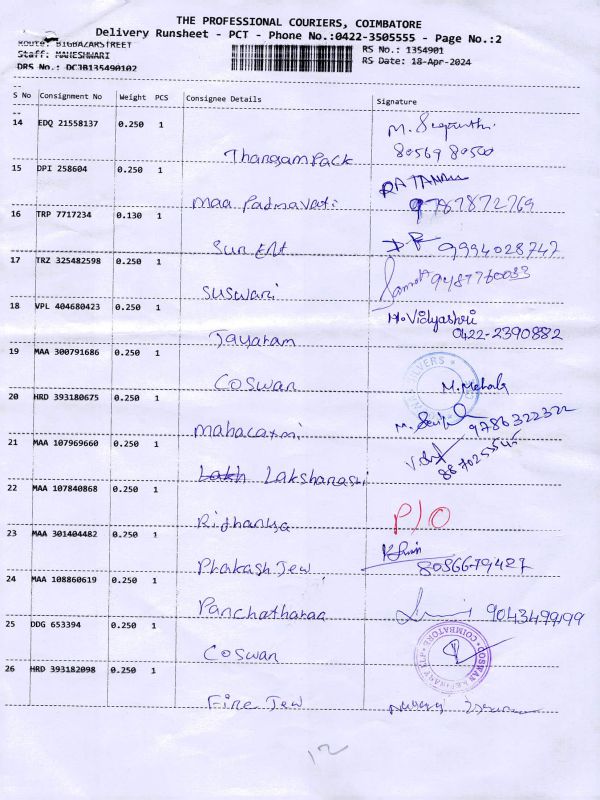 THE PROFESSIONAL COURIERS, COIMBATORE
Delivery Runsheet - PCT - Phone No.:0422-3505555 - Page No.:2
Route: BIGBAZARSTREET
RS No.: 1354901
Staff: MAHESHWARI
RS Date: 18-Apr-2024
DRS No.: DCJB135490102
S No Consignment No Weight PCS Consignee Details Signature
14 EDQ 21558137 0.250 1
80569 80500
Thangam Pack
15 DPI 258604 0.250 1
RATANRAM
Maa Padmavati 9787872769
16 TRP 7717234 0.130 1
Sun Ent 9994028747
17 TRZ 325482598 0.250 1
9487760033
Suswani
18 VPL 404680423 0.250 1
M. Vidyashri
0422-2390882
Jayaram
19 MAA 300791686 0.250 1
Coswan M. Mehala
20 HRD 393180675 0.250 1
9786322322
Mahalaxmi
21 MAA 107969660 0.250 1
8870255545
Lakh Lakshanasri
22 MAA 107840868 0.250 1
P/O
Rithanya
23 MAA 301404482 0.250 1
Prakash Jew 8056679427
24 MAA 108860619 0.250 1
Panchatharaa 9043499199
25 DDG 653394 0.250 1
COIMBATORE
COSWAN REFINARY LLP
Coswan
26 HRD 393182098 0.250 1
Fine Jew
12